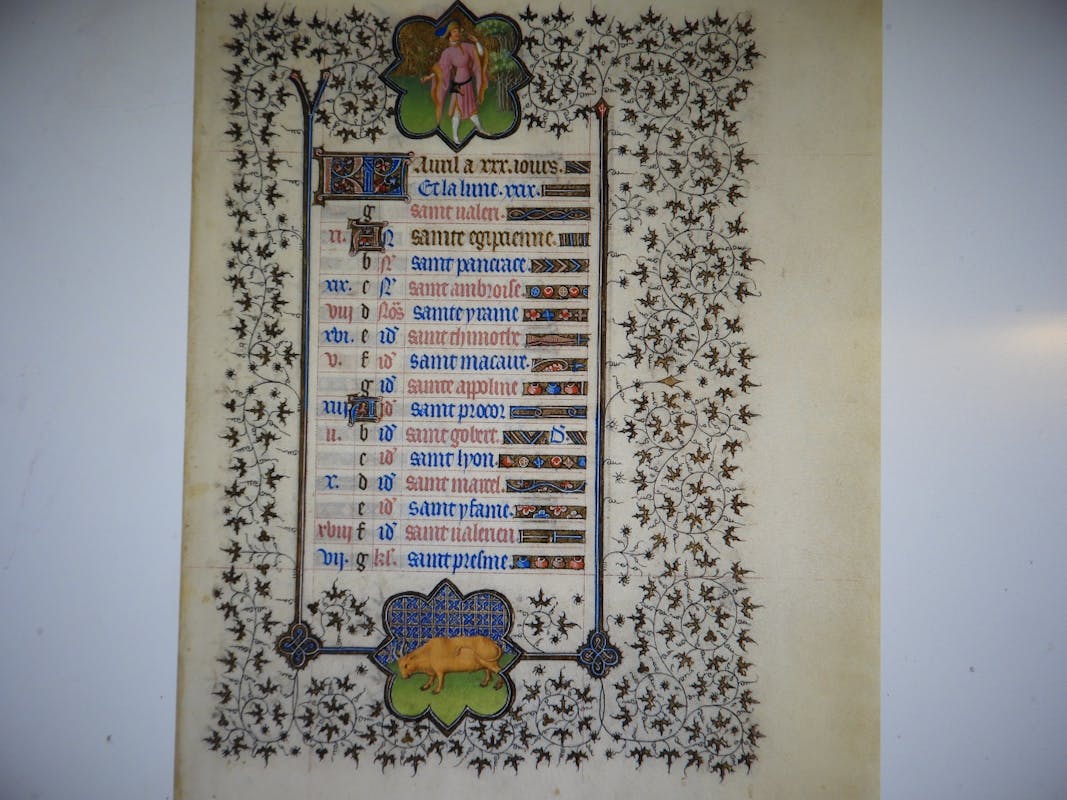 KL Auril a xxx. iours.
Et la lune. xxix.
g saint ualeri.
xi. A N sainte egipcienne.
b N saint pancrace.
xix. c N saint ambroise.
viii d Nos sainte yraine
xvi. e id saint thimothe
v. f id saint macaire.
g id sainte appoline
xiii A id saint procor
ii. b id saint gobert.
c id saint lyon.
x. d id saint marcel.
e id saint yfame.
xviii f id saint ualerien
vii. g kl. saint presme